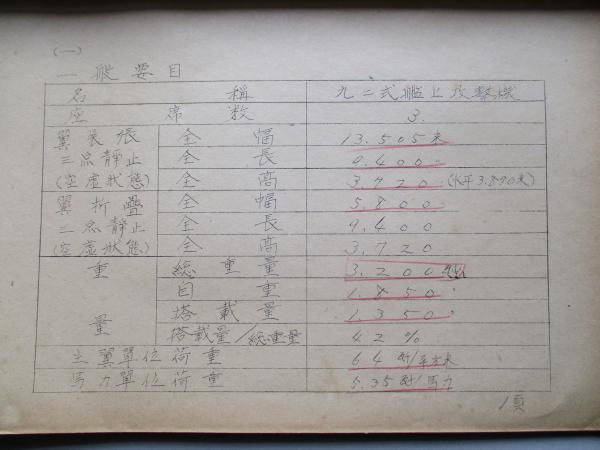 (一)
一般要目
名稱 九二式艦上攻撃機
座席数 3.
翼展張 全幅 13.505米
三点靜止 全長 9.400
(空虚状態) 全高 3.720 (水平3.890米)
翼折疊 全幅 5.800
三点靜止 全長 9.400
(空虚状態) 全高 3.720
重 総重量 3.200
自重 1.850
搭載量 1.350
量 搭載量/総重量 42%
主翼單位荷重 64 /平方米
馬力單位荷重 5.35 /馬力
1頁